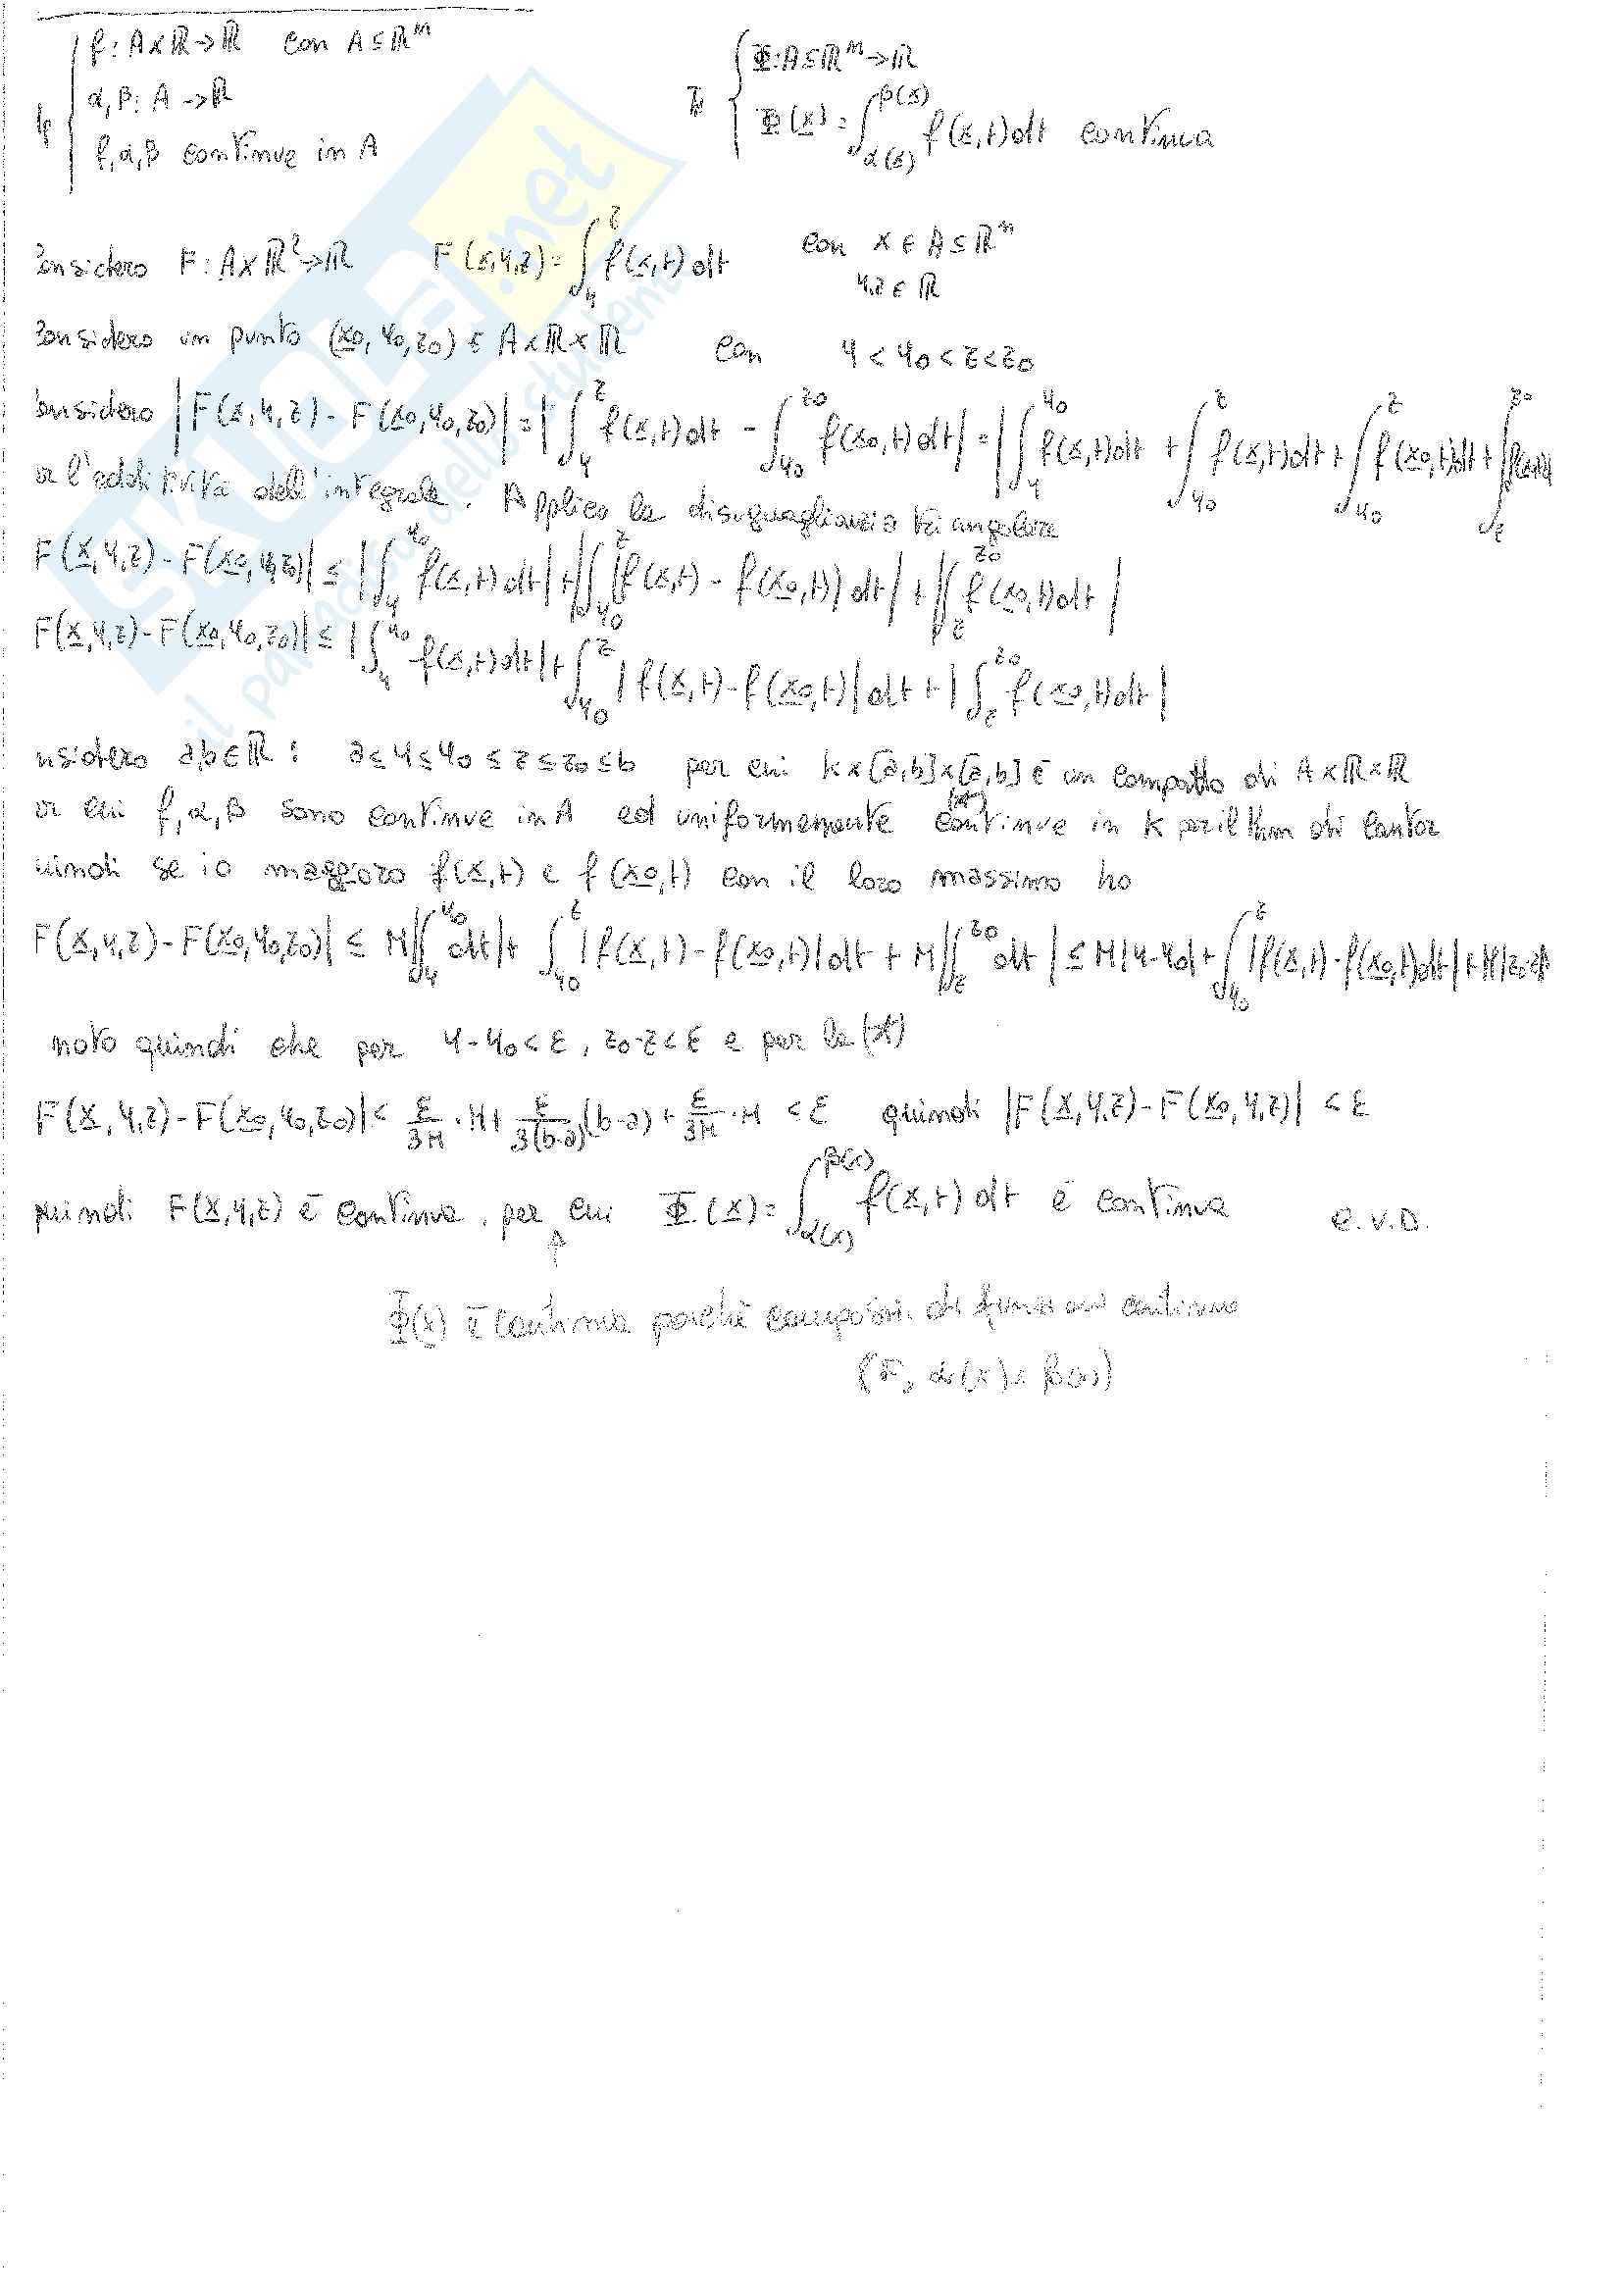 Ip { f: A×ℝ→ℝ con A⊆ℝⁿ
α,β: A→ℝ
f,α,β continue in A
Th { Φ: A⊆ℝⁿ→ℝ
Φ(x) = ∫_{α(x)}^{β(x)} f(x,t)dt continua
onsidero F: A×ℝ²→ℝ F(x,y,z) = ∫_y^z f(x,t)dt con x∈A⊆ℝⁿ
y,z∈ℝ
onsidero un punto (x0,y0,z0) ∈ A×ℝ×ℝ con y<y0<z<z0
onsidero |F(x,y,z) - F(x0,y0,z0)| = |∫_y^z f(x,t)dt - ∫_{y0}^{z0} f(x0,t)dt| = |∫_y^{y0} f(x,t)dt + ∫_{y0}^z f(x,t)dt + ∫_{y0}^z f(x0,t)dt + ∫_z^{z0}
l'additività dell'integrale. Applico la disuguaglianza triangolare
F(x,y,z) - F(x0,y0,z0)| ≤ |∫_y^{y0} f(x,t)dt| + |∫_{y0}^z [f(x,t) - f(x0,t)] dt| + |∫_z^{z0} f(x0,t)dt|
F(x,y,z) - F(x0,y0,z0)| ≤ |∫_y^{y0} f(x,t)dt| + ∫_{y0}^z |f(x,t) - f(x0,t)| dt + |∫_z^{z0} f(x0,t)dt|
nsidero a,b∈ℝ : a≤y≤y0≤z≤z0≤b per cui K×[a,b]×[a,b] è un compatto di A×ℝ×ℝ
(*)
cui f,α,β sono continue in A ed uniformemente continue in K per il thm di Cantor
uindi se io maggioro f(x,t) e f(x0,t) con il loro massimo ho
F(x,y,z) - F(x0,y0,z0)| ≤ M|∫_y^{y0} dt| + ∫_{y0}^z |f(x,t) - f(x0,t)|dt + M|∫_z^{z0} dt| ≤ M|y-y0| + ∫_{y0}^z |f(x,t) - f(x0,t)dt| + M|z0-z|
noto quindi che per y-y0<ε, z0-z<ε e per la (*)
F(x,y,z) - F(x0,y0,z0)| < ε/3M · M + ε/3(b-a) (b-a) + ε/3M · M < ε quindi |F(x,y,z) - F(x0,y,z)| < ε
quindi F(x,y,z) è continua, per cui Φ(x) = ∫_{α(x)}^{β(x)} f(x,t) dt è continua C.V.D.
Φ(x) è continua perché composiz. di funzioni continue
(F, α(x) e β(x))
SKUOLA.net
il paradiso dello studente